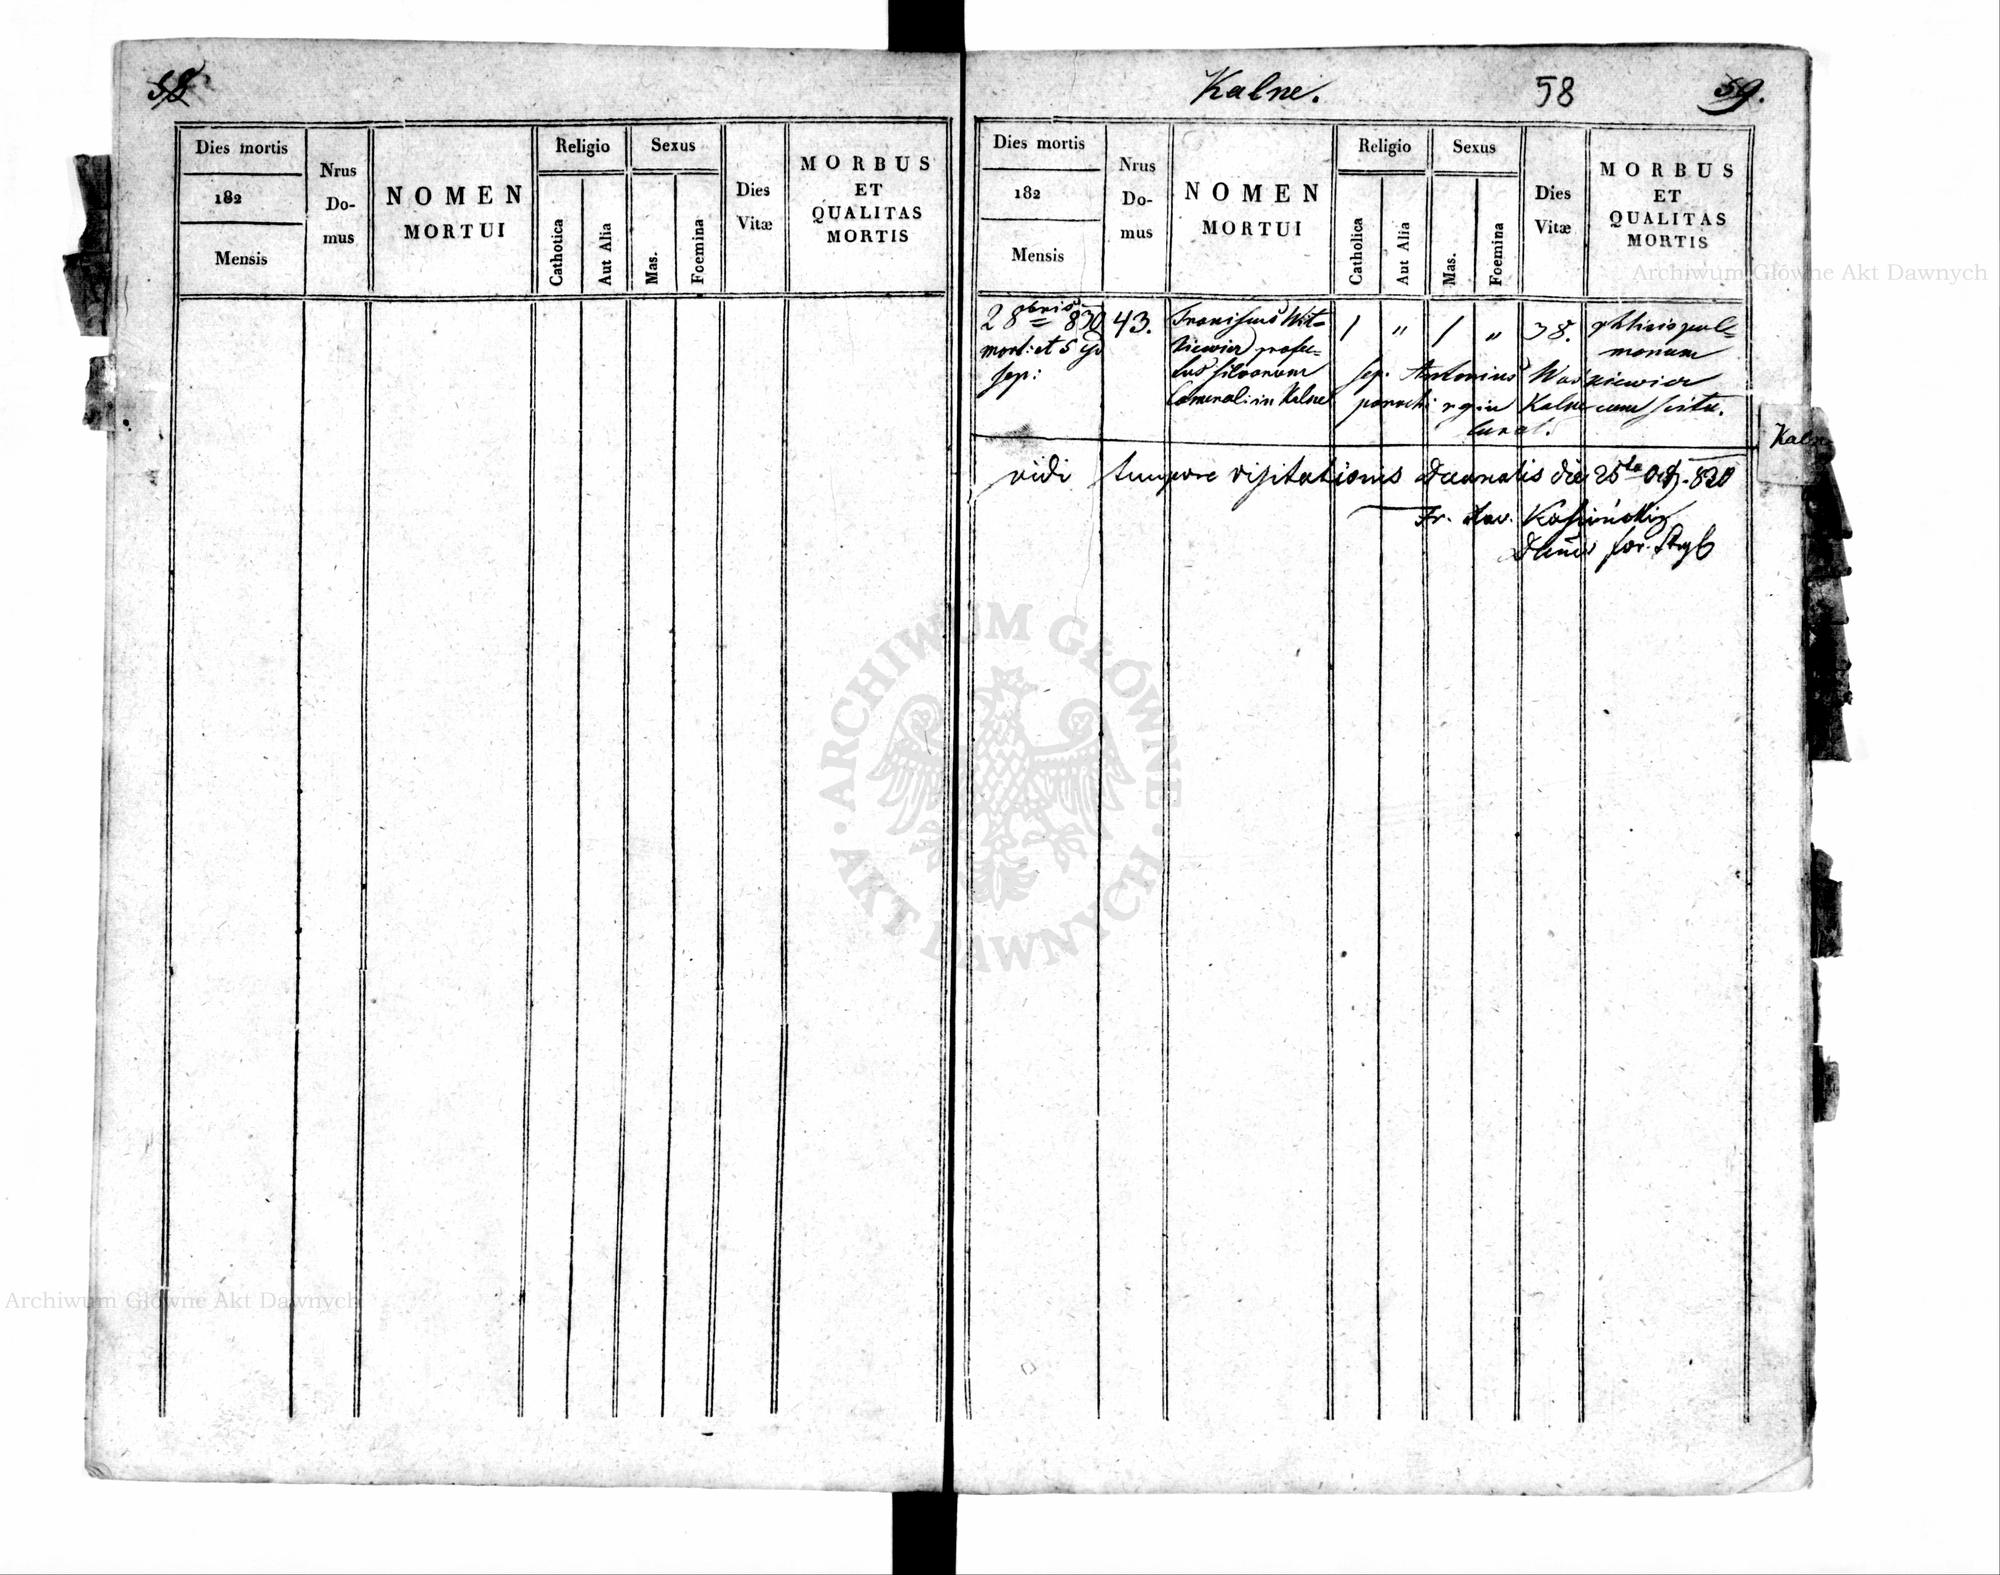 58
Dies mortis
182
Mensis
Nrus
Do-
mus
NOMEN
MORTUI
Religio
Catholica
Aut Alia
Sexus
Mas.
Foemina
Dies
Vitæ
MORBUS
ET
QUALITAS
MORTIS
Kalne.
58
59.
Dies mortis
182
Mensis
Nrus
Do-
mus
NOMEN
MORTUI
Religio
Catholica
Aut Alia
Sexus
Mas.
Foemina
Dies
Vitæ
MORBUS
ET
QUALITAS
MORTIS
2 8bris 830
mort: et 5
sep:
43.
Franciscus Wit-
kiewicz prefec-
tus silvarum
Cameral: in Kalne
/ " / " 38.
phtisis pul-
monum
sep. Antonius
parochi in Kalne
vidi tempore visitationis Decanalis die 25ta 830
Kaln
Archiwum Główne Akt Dawnych
Archiwum Główne Akt Dawnych
ARCHIWUM GŁÓWNE
AKT DAWNYCH